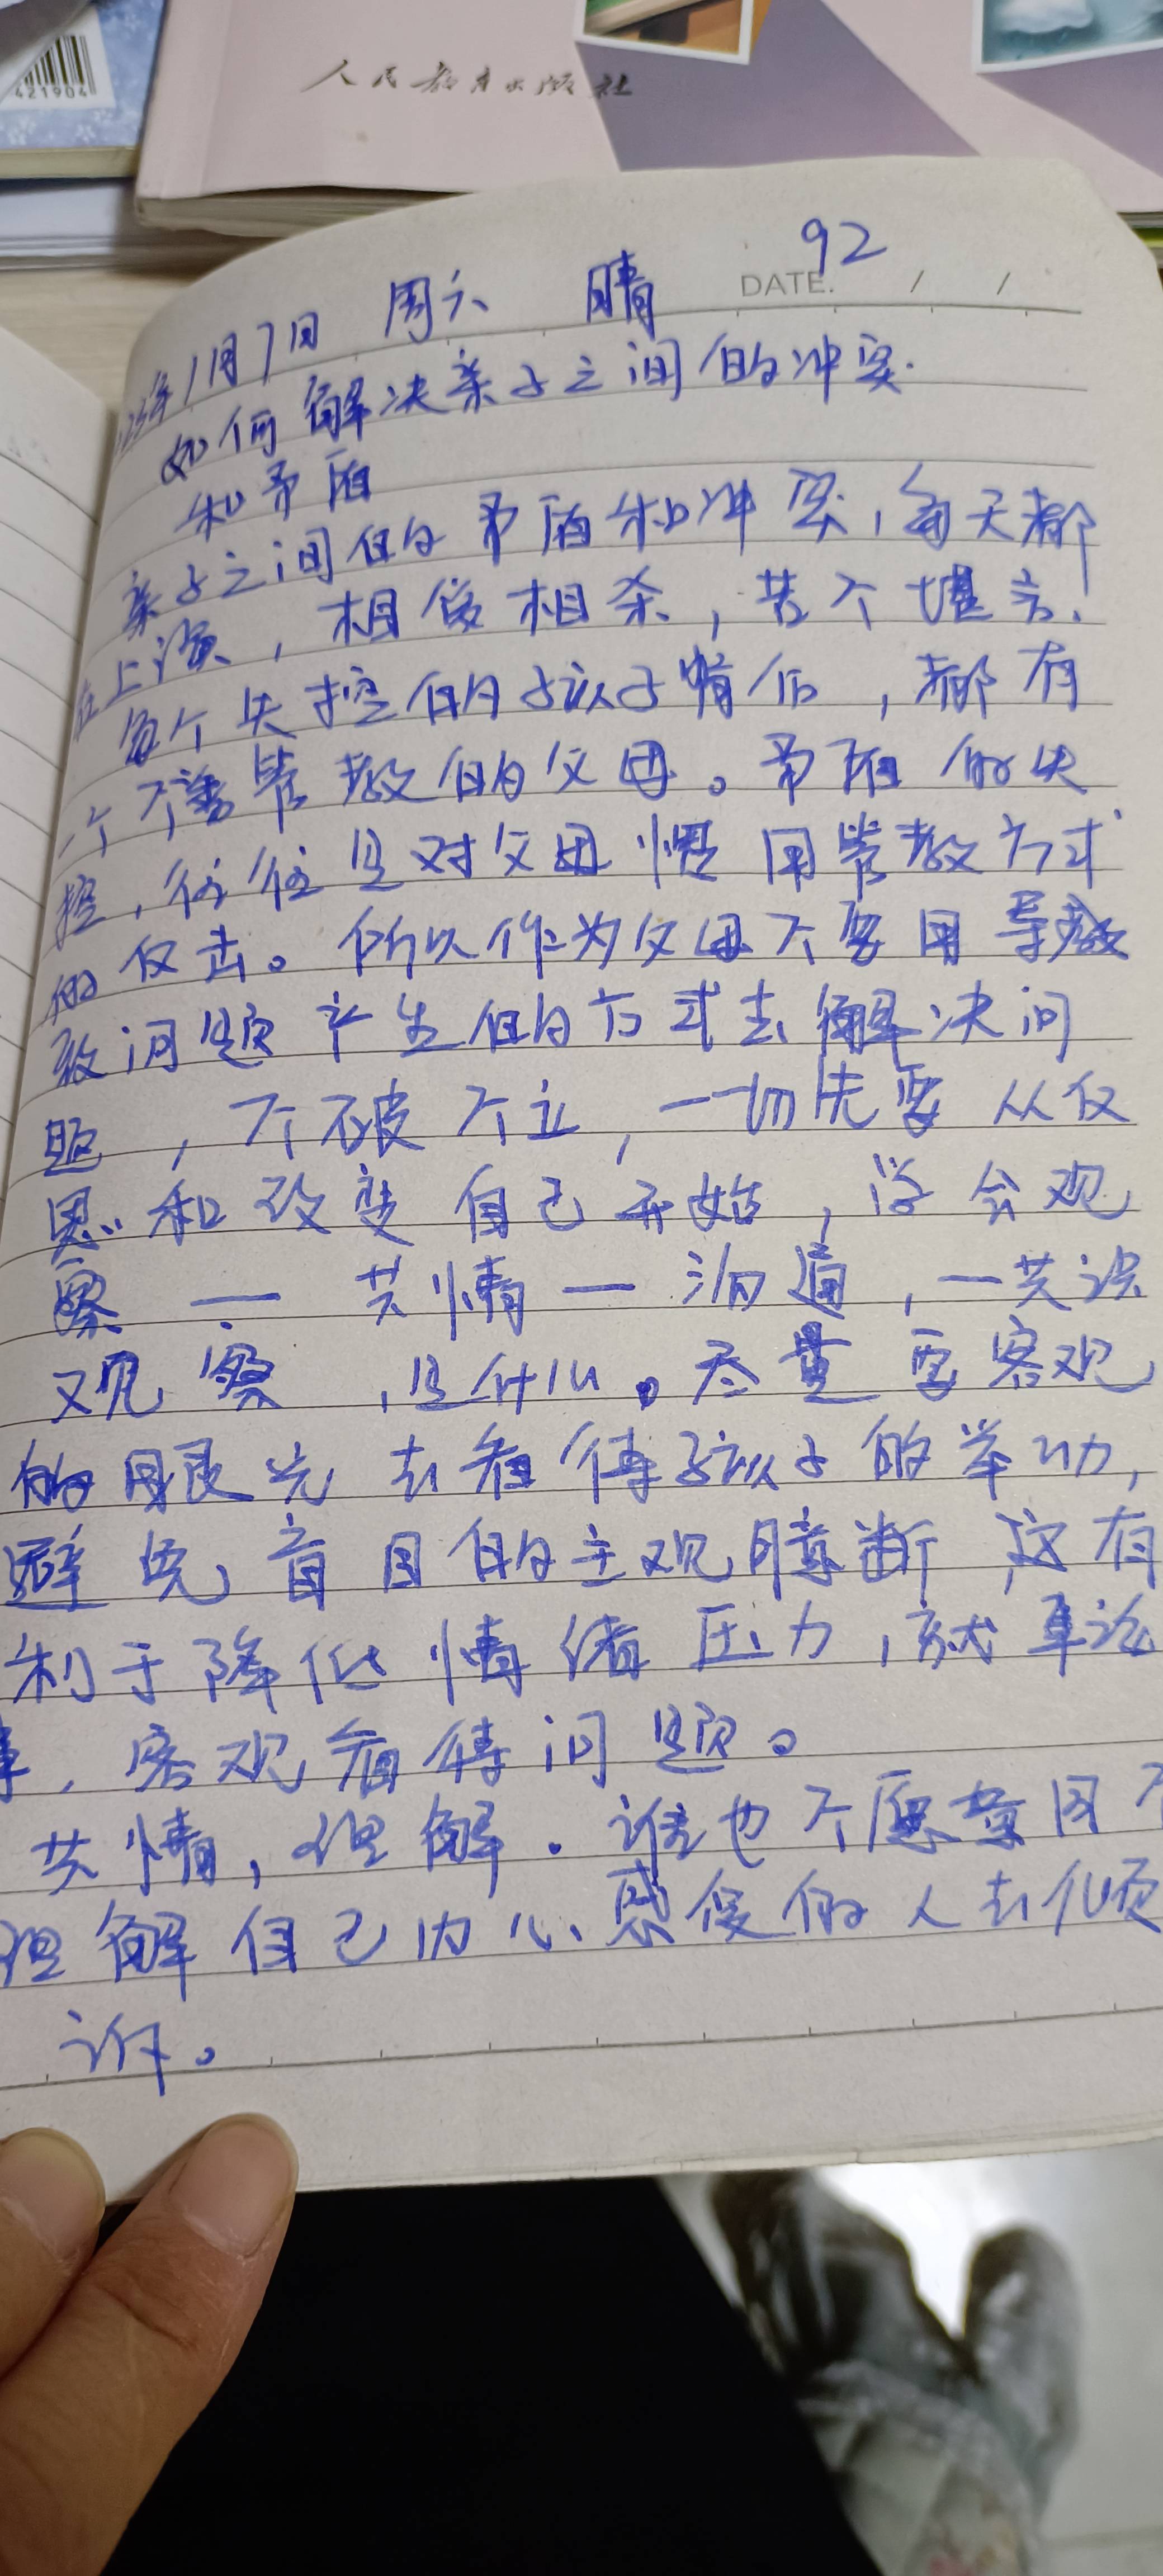 421904
人民教育出版社
92
DATE. / /
23年1月7日 周六 晴
如何解决亲子之间的冲突.
和矛盾
亲子之间的矛盾和冲突,每天都
在上演,相爱相杀,苦不堪言.
每个失控的孩子背后,都有
一个不善管教的父母。矛盾的失
控,往往是对父母惯用管教方式
的反击。所以作为父母不要用导致
致问题产生的方式去解决问
题,不破不立,一切先要从反
思和改变自己开始,学会观
察—共情—沟通,—共识
观察,是什么。尽量要客观
的眼光去看待孩子的举动,
避免盲目的主观臆断,这有
利于降低情绪压力,就事论
事,客观看待问题。
共情,理解.谁也不愿意因不
理解自己内心感受的人去倾
诉。